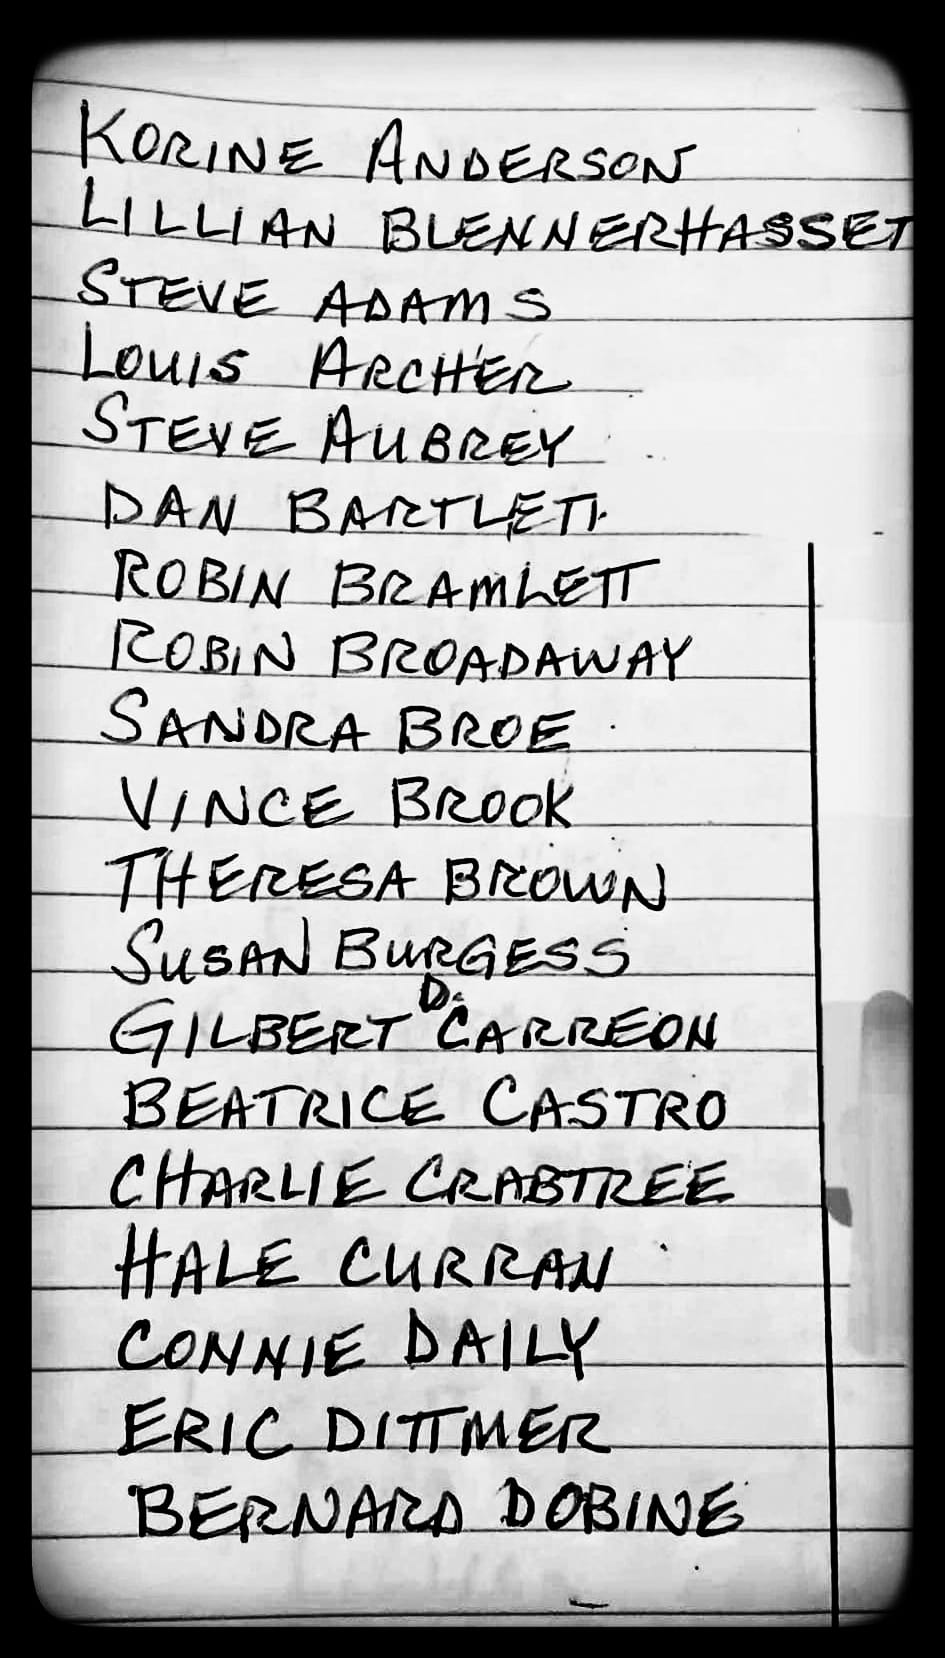 KORINE ANDERSON
LILLIAN BLENNERHASSET
STEVE ADAMS
LOUIS ARCHER
STEVE AUBREY
DAN BARTLETT
ROBIN BRAMLETT
ROBIN BROADAWAY
SANDRA BROE
VINCE BROOK
THERESA BROWN
SUSAN BURGESS
GILBERT D. CARREON
BEATRICE CASTRO
CHARLIE CRABTREE
HALE CURRAN
CONNIE DAILY
ERIC DITTMER
BERNARD DOBINE